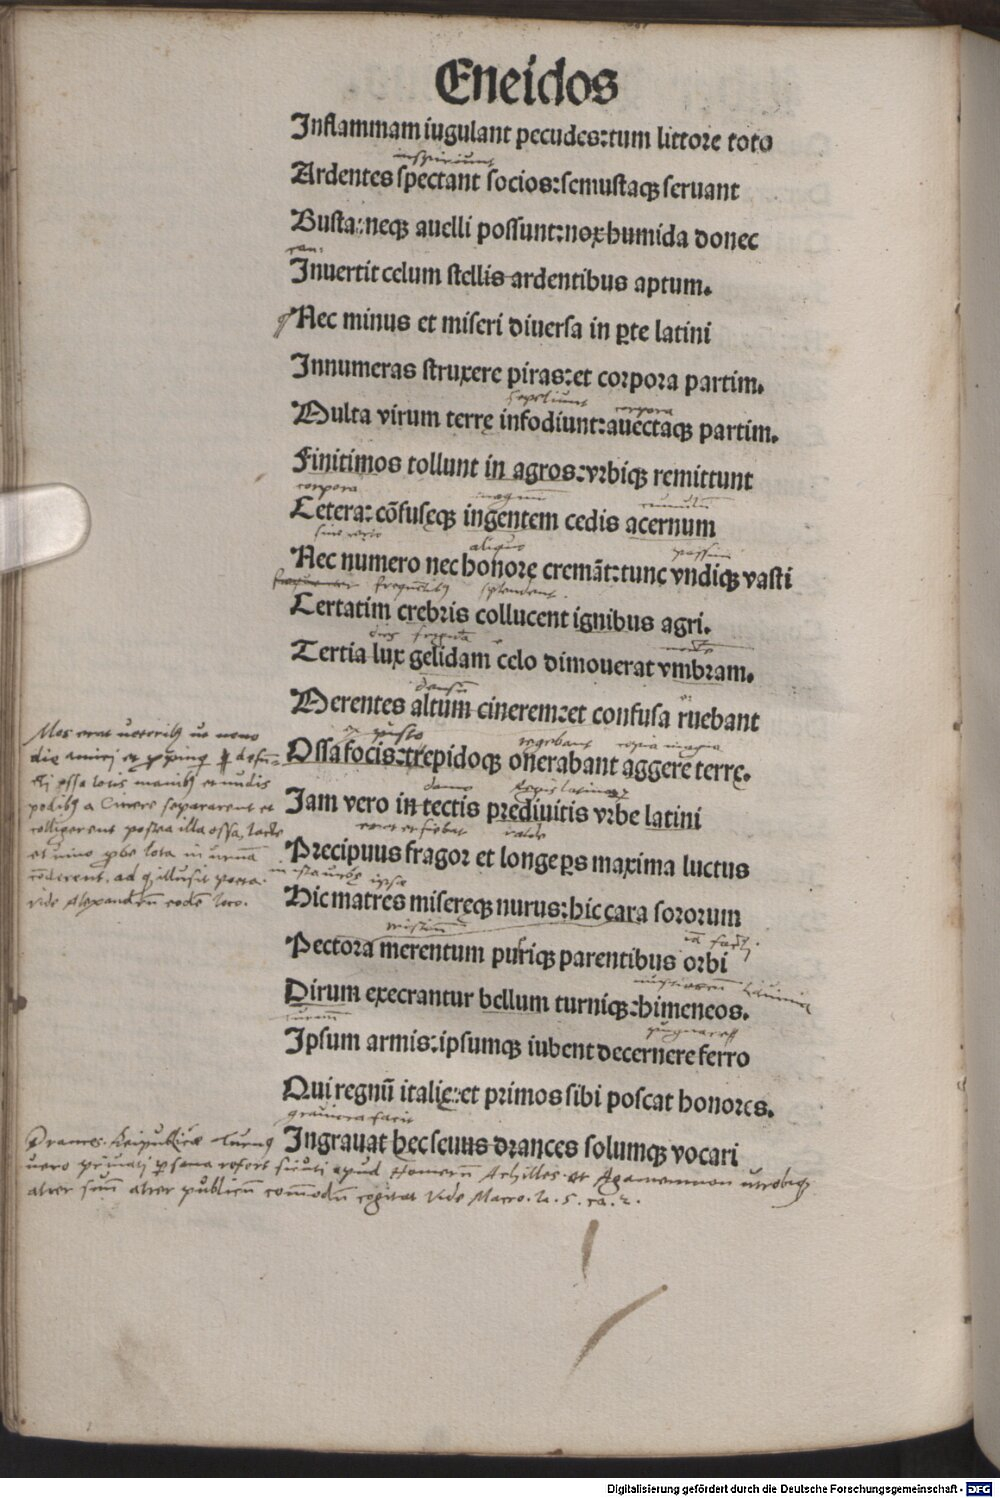 Eneidos
Inflammam iugulant pecudes: tum littore toto
inspiciunt
Ardentes spectant socios: semustaqꝫ seruant
Busta: neqꝫ auelli possunt: nox humida donec
Inuertit celum stellis ardentibus aptum.
Nec minus et miseri diuersa in ꝑte latini
Innumeras struxere piras: et corpora partim.
sepeliunt corpora
Multa virum terrę infodiunt: auectaqꝫ partim.
Finitimos tollunt in agros: vrbiqꝫ remittunt
corpora
Cetera: cōfusęqꝫ ingentem cedis aceruum
sine
Nec numero nec honore cremāt: tunc vndiqꝫ vasti
splendent.
Certatim crebris collucent ignibus agri.
Tertia lux gelidam celo dimouerat vmbram.
Merentes altum cinerem: et confusa ruebant
tegebant copia magna
Ossa focis: trepidoqꝫ onerabant aggere terrę.
Iam vero in tectis prediuitis vrbe latini
valde
Precipuus fragor et longe ꝑs maxima luctus
Hic matres misereqꝫ nurus: hic cara sororum
Pectora merentum puriqꝫ parentibus orbi
Dirum execrantur bellum turniqꝫ himeneos.
Ipsum armis: ipsumqꝫ iubent decernere ferro
Qui regnū italię: et primos sibi poscat honores.
grauiora facit
Ingrauat hec seuus drances solumqꝫ vocari
Mos erat
die amici et
ossa lotis manibꝫ et nudis
pedibꝫ a Cinere separarent et
colligerent postea illa ossa, lacte
et uino lota in urnā
cōderent. ad illusit poeta.
vide Alexandrū eodē loco.
Drances
uero apud Homerū Achilles et Agamemnon
alter suū alter publicū commodū cogitat vide Macro. li. 5. ca. 2.
Digitalisierung gefördert durch die Deutsche Forschungsgemeinschaft - DFG